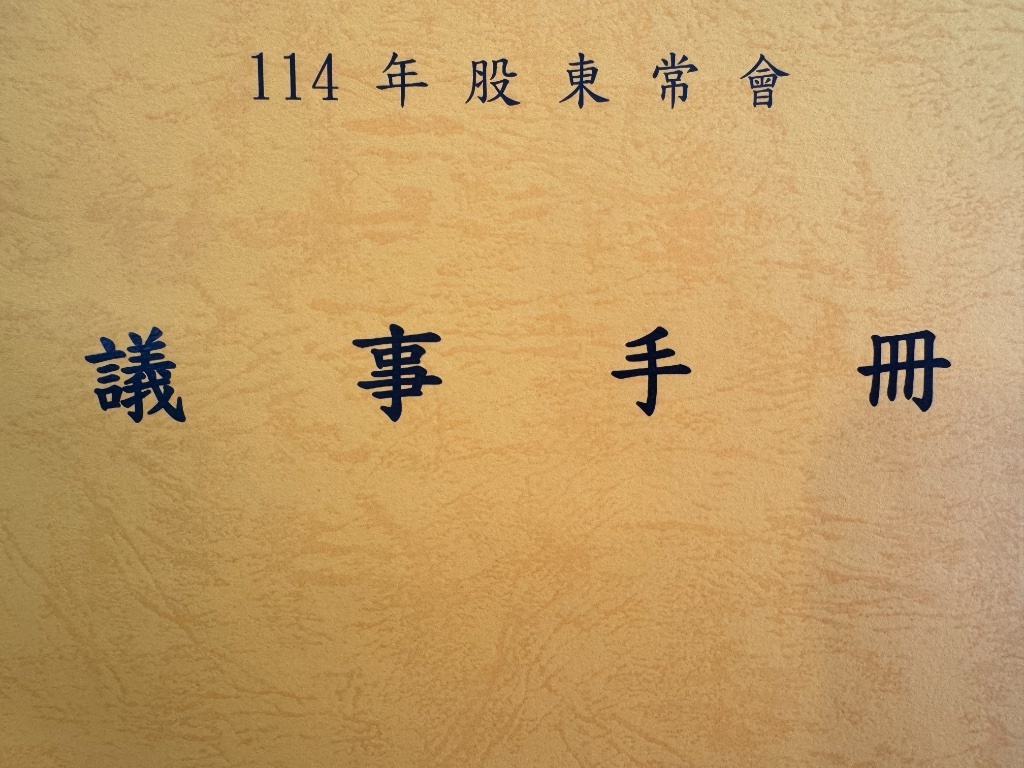 114 年 股 東 常 會
議 事 手 冊